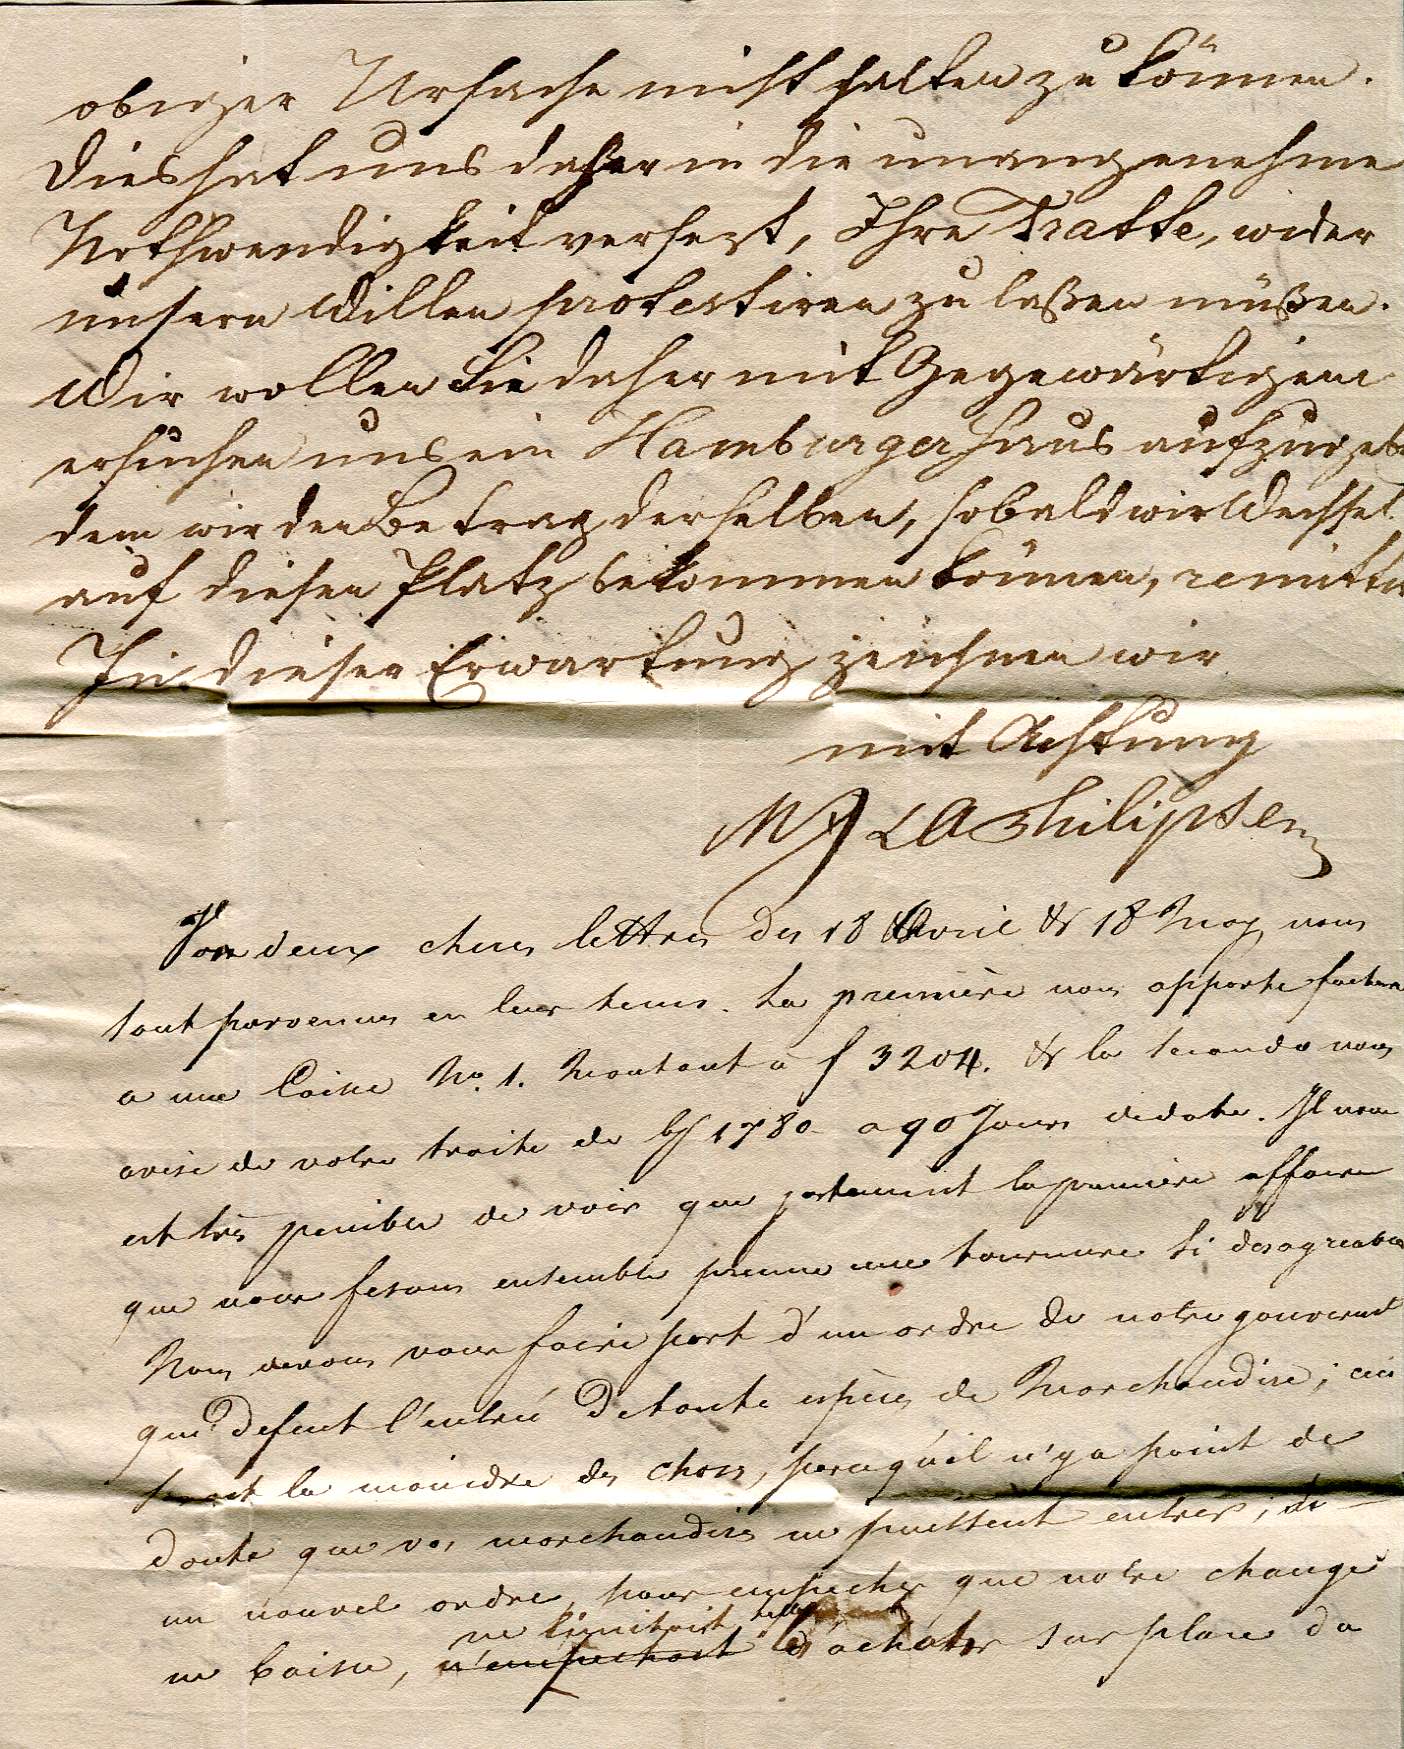 obiger Ursache nicht halten zu können.
Dies hat uns daher in die unangenehme
Nothwendigkeit versezt, Ihre Tratte, wider
unsern Willen protestiren zu laßen müßen.
Wir wollen Sie daher mit Gegewärtigem
ersuchen uns ein Hamburger Haus aufzugeb
dem wir den Betrag derselben, sobald wir Wechsel
auf diesen Platz bekommen können, remitti
In dieser Erwartung zeichnen wir
mit Achtung
M & LA Philipsen
Vos deux cheres lettres des 18 Avril & 18 May nous
sont parvenues en leur tems. La première nous apporte facture
a une Caisse No. 1. Montant a f 3204. & la seconde nous
avise de votre traite de 1780 a 90 Jours dedate. Il nous
est très penible de voir que justement la première affaire
que nous fesons ensemble prenne une tournure si desagreable
Nous devons vous faire part d'un ordre de notre gouvernmt
qui defent l'entrée de toute espèces de Marchandise; ceci
seroit la moindre des choses, parcequ'il n'y a point de
doute que vos marchandises ne puissent entrer,
un nouvel ordre, pour empecher que notre change
ne limitoit
ne baisse, n'empechoit d'acheter sur place du